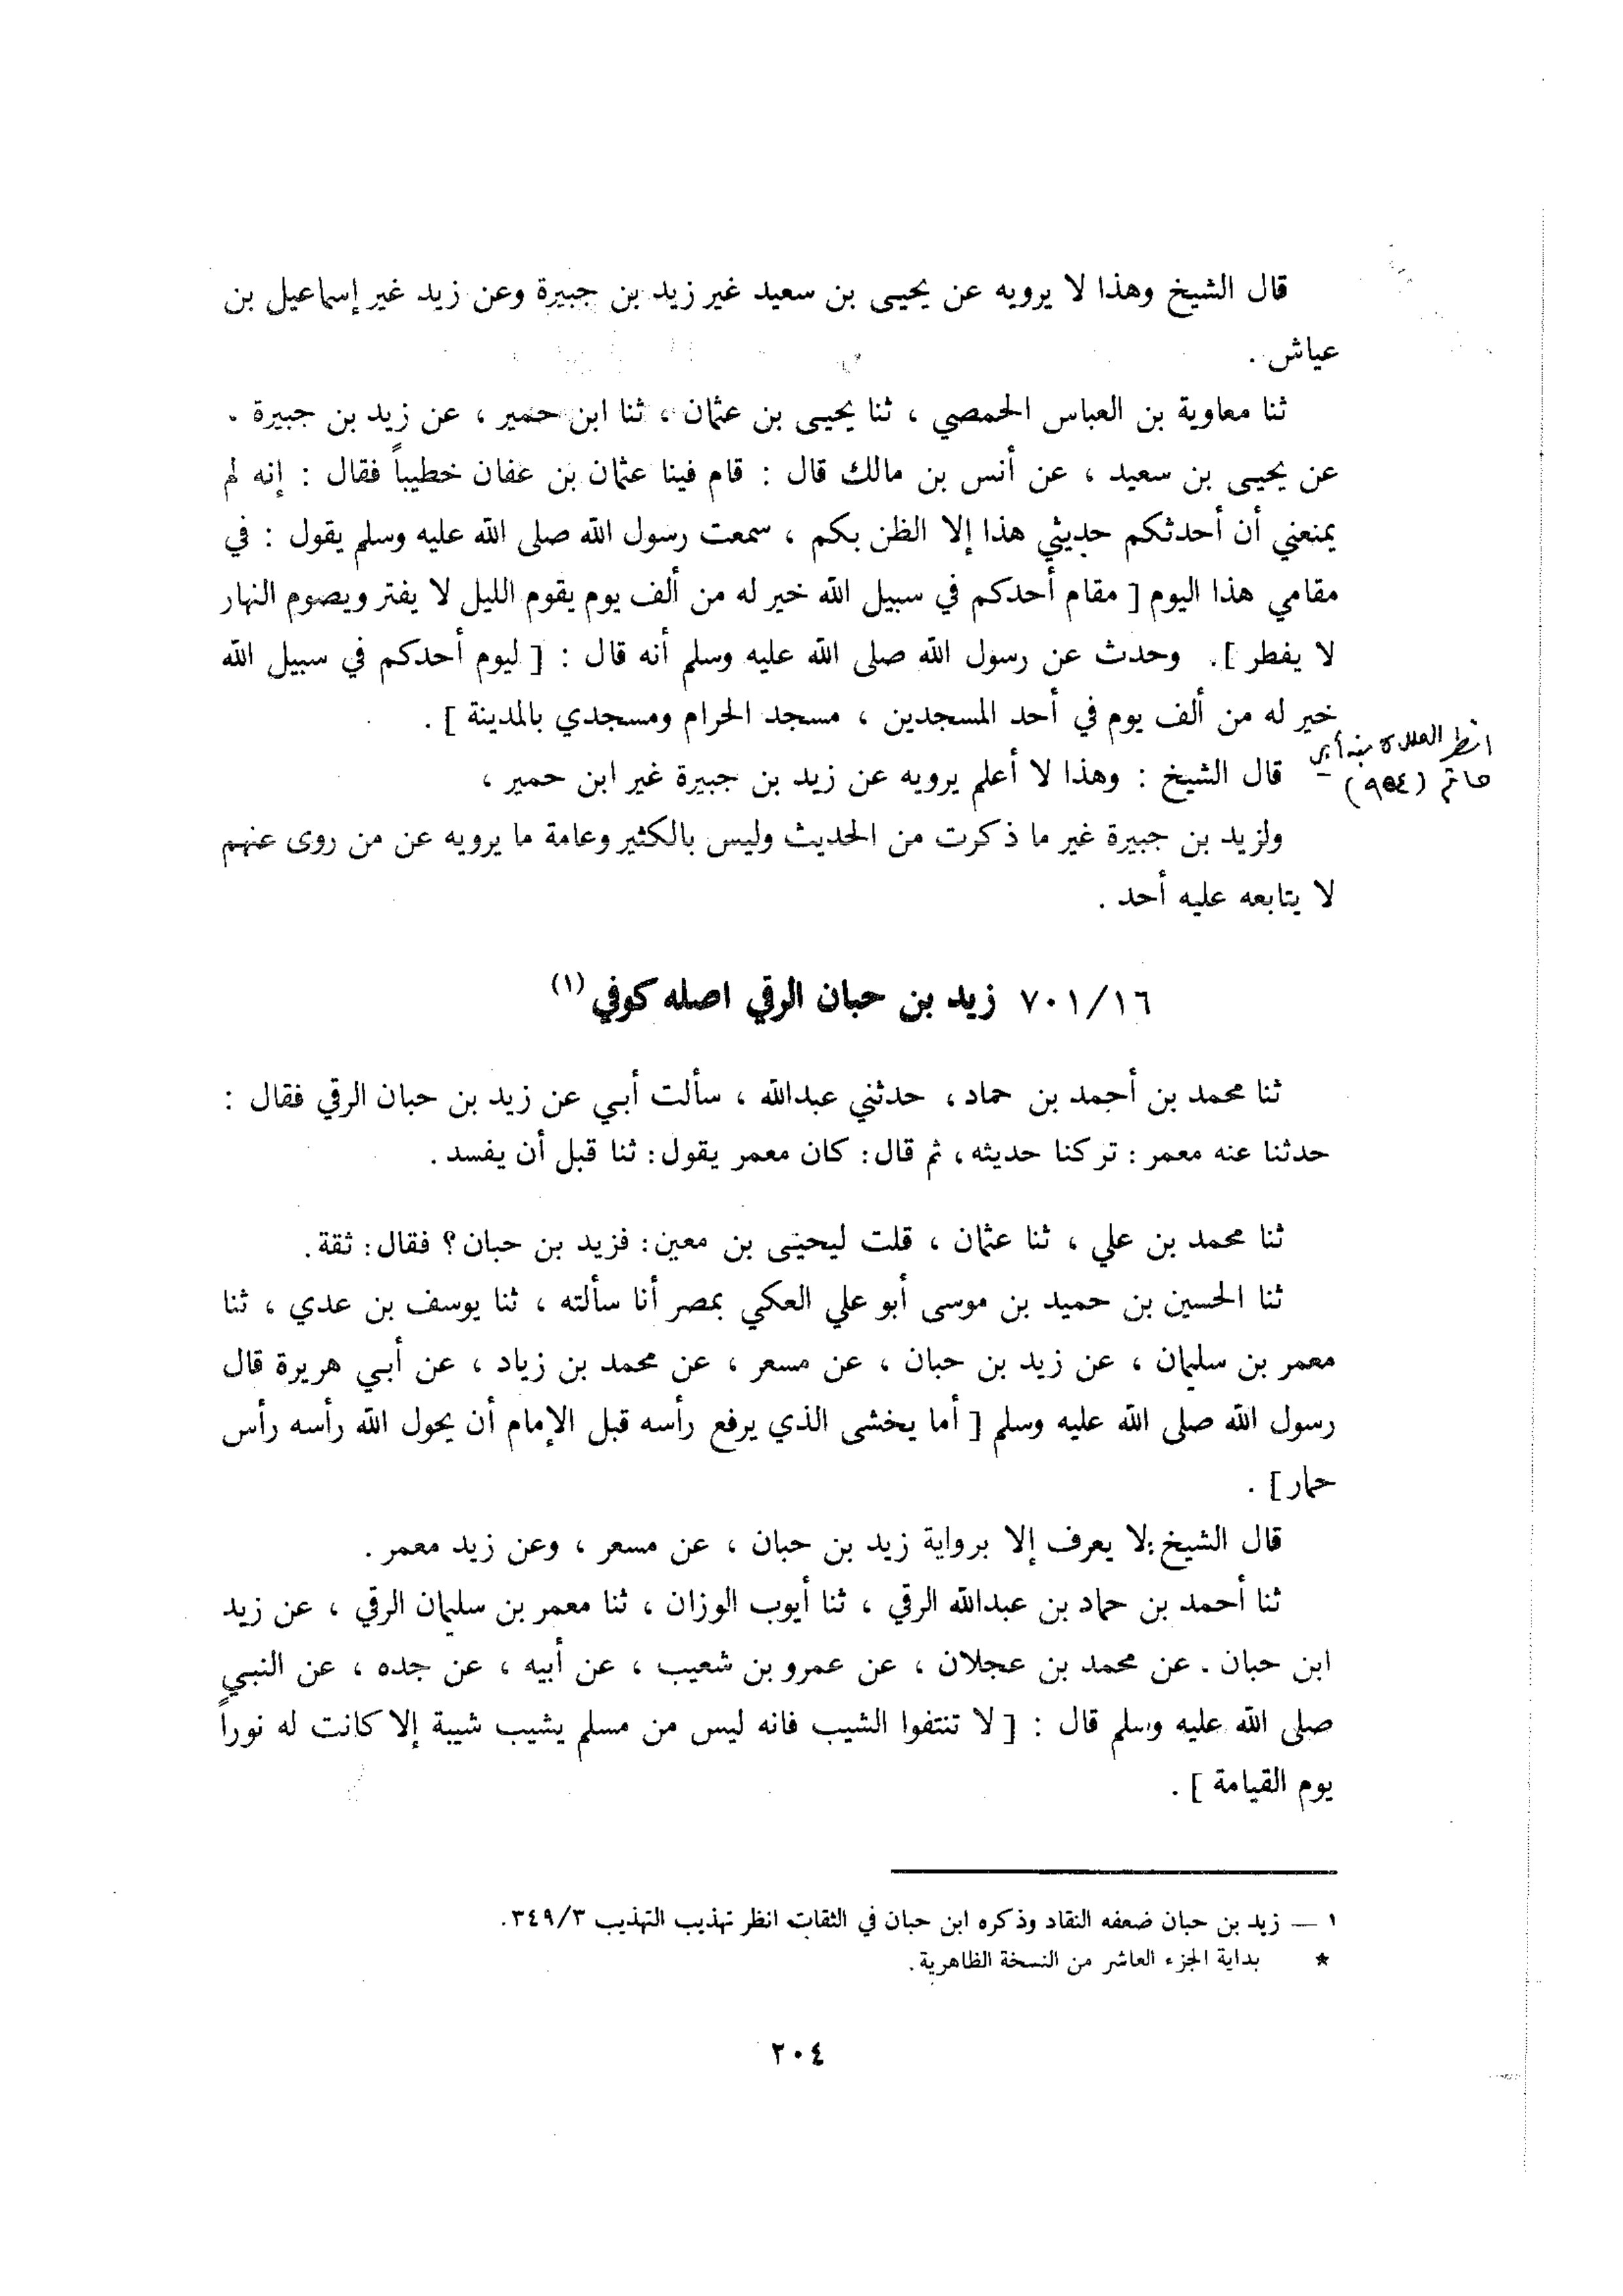 قال الشيخ وهذا لا يرويه عن يحيى بن سعيد غير زيد بن جبيرة وعن زيد غير إسماعيل بن
عياش .
ثنا معاوية بن العباس الحمصي ، ثنا يحيى بن عثمان ، ثنا ابن حمير ، عن زيد بن جبيرة .
عن يحيى بن سعيد ، عن أنس بن مالك قال : قام فينا عثمان بن عفان خطيباً فقال : إنه لم
يمنعني أن أحدثكم حديثي هذا إلا الظن بكم ، سمعت رسول الله صلى الله عليه وسلم يقول : في
مقامي هذا اليوم [ مقام أحدكم في سبيل الله خير له من ألف يوم يقوم الليل لا يفتر ويصوم النهار
لا يفطر ]. وحدث عن رسول الله صلى الله عليه وسلم أنه قال : [ ليوم أحدكم في سبيل الله
خير له من ألف يوم في أحد المسجدين ، مسجد الحرام ومسجدي بالمدينة ] .
انظر العلل لابن أبي
حاتم (٩٥٤) -
قال الشيخ : وهذا لا أعلم يرويه عن زيد بن جبيرة غير ابن حمير ،
ولزيد بن جبيرة غير ما ذكرت من الحديث وليس بالكثير وعامة ما يرويه عن من روى عنهم
لا يتابعه عليه أحد .
٧٠١/١٦ زيد بن حبان الرقي اصله كوفي (١)
ثنا محمد بن أحمد بن حماد ، حدثني عبدالله ، سألت أبي عن زيد بن حبان الرقي فقال :
حدثنا عنه معمر : تركنا حديثه ، ثم قال : كان معمر يقول : ثنا قبل أن يفسد .
ثنا محمد بن علي ، ثنا عثمان ، قلت ليحيى بن معين : فزيد بن حبان ؟ فقال : ثقة .
ثنا الحسين بن حميد بن موسى أبو علي العكي بمصر أنا سألته ، ثنا يوسف بن عدي ، ثنا
معمر بن سليمان ، عن زيد بن حبان ، عن مسعر ، عن محمد بن زياد ، عن أبي هريرة قال
رسول الله صلى الله عليه وسلم [ أما يخشى الذي يرفع رأسه قبل الإمام أن يحول الله رأسه رأس
حمار ] .
قال الشيخ : لا يعرف إلا برواية زيد بن حبان ، عن مسعر ، وعن زيد معمر .
ثنا أحمد بن حماد بن عبدالله الرقي ، ثنا أيوب الوزان ، ثنا معمر بن سليمان الرقي ، عن زيد
ابن حبان . عن محمد بن عجلان ، عن عمرو بن شعيب ، عن أبيه ، عن جده ، عن النبي
صلى الله عليه وسلم قال : [ لا تنتفوا الشيب فانه ليس من مسلم يشيب شيبة إلا كانت له نوراً
يوم القيامة ] .
١ — زيد بن حبان ضعفه النقاد وذكره ابن حبان في الثقات انظر تهذيب التهذيب ٣٤٩/٣.
* بداية الجزء العاشر من النسخة الظاهرية .
٢٠٤